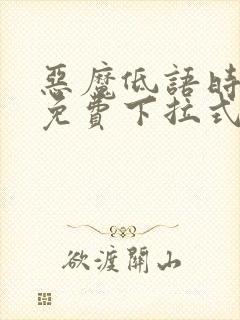 惡魔低語時
免費下拉式
欲渡關山